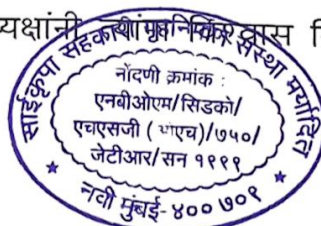 यक्षांनी विश्वास
साईकृपा सहकारी गृहनिर्माण संस्था मर्यादित
नोंदणी क्रमांक :
एनबीओएम/सिडको/
एचएसजी ( ओएच)/७५०/
जेटीआर/सन १९९९
नवी मुंबई- ४०० ७०९